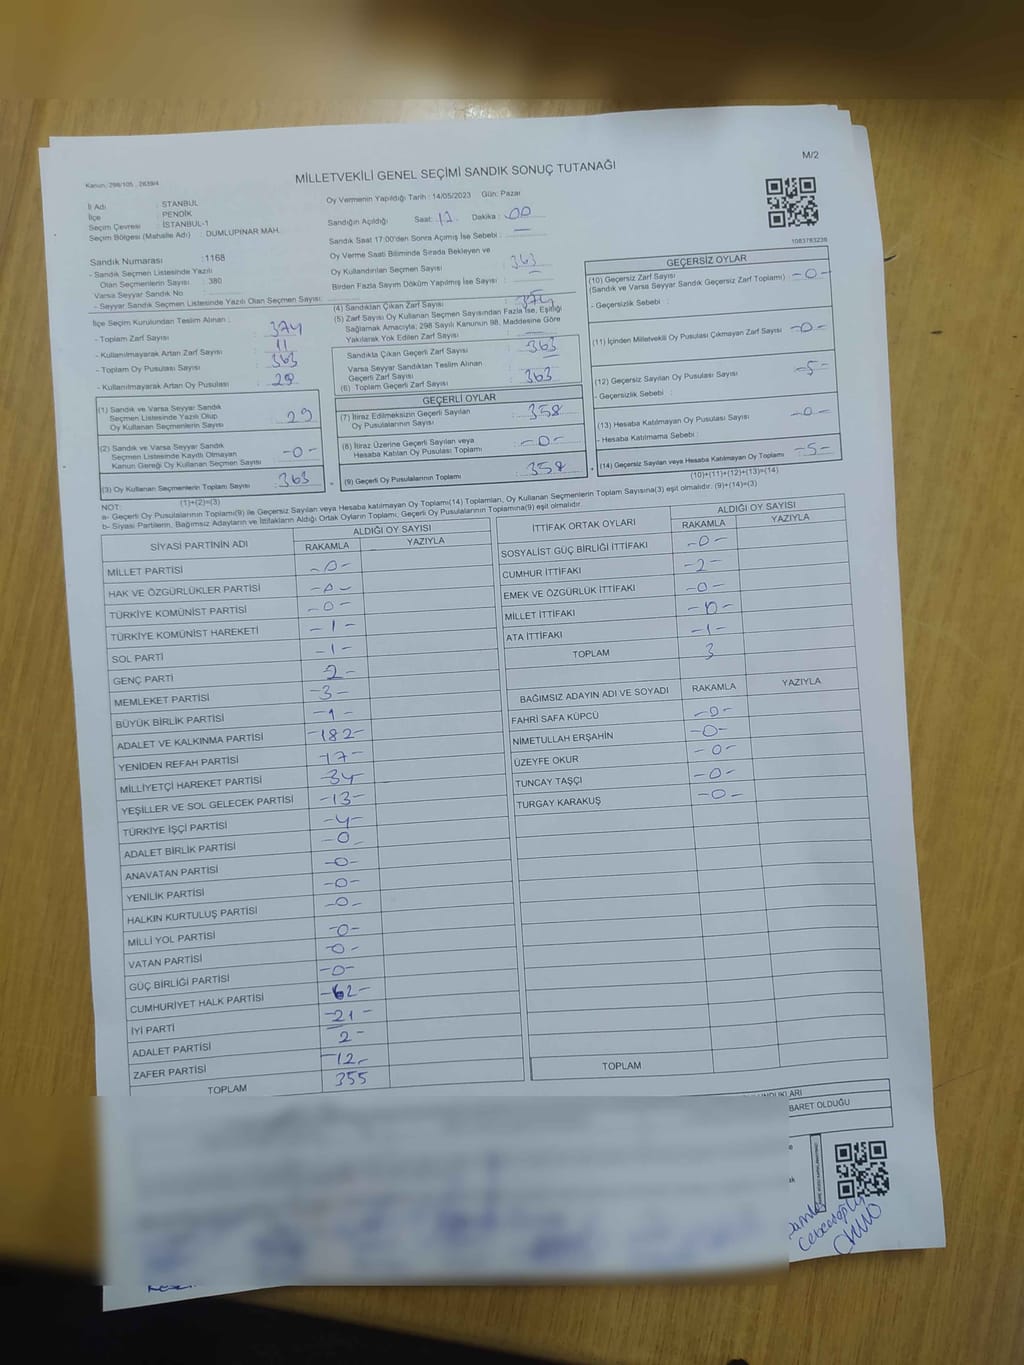 M/2
Kanun, 298/105 , 2839/4
MİLLETVEKİLİ GENEL SEÇİMİ SANDIK SONUÇ TUTANAĞI
İl Adı : STANBUL
İlçe : PENDİK
Seçim Çevresi : İSTANBUL-1
Seçim Bölgesi (Mahalle Adı) : DUMLUPINAR MAH.
Sandık Numarası :1168
- Sandık Seçmen Listesinde Yazılı
Olan Seçmenlerin Sayısı : 380
Varsa Seyyar Sandık No :
- Seyyar Sandık Seçmen Listesinde Yazılı Olan Seçmen Sayısı:
Oy Vermenin Yapıldığı Tarih : 14/05/2023 Gün: Pazar
Sandığın Açıldığı Saat: 17 Dakika : 00
Sandık Saat 17:00'den Sonra Açımış İse Sebebi : —
Oy Verme Saati Bitiminde Sırada Bekleyen ve
Oy Kullandırılan Seçmen Sayısı : 363
Birden Fazla Sayım Döküm Yapılmış İse Sayısı : —
1083783238
İlçe Seçim Kurulundan Teslim Alınan :
- Toplam Zarf Sayısı : 374
- Kullanılmayarak Artan Zarf Sayısı : 11
- Toplam Oy Pusulası Sayısı : 363
- Kullanılmayarak Artan Oy Pusulası : 29
(1) Sandık ve Varsa Seyyar Sandık
Seçmen Listesinde Yazılı Olup
Oy Kullanan Seçmenlerin Sayısı : 29
(2) Sandık ve Varsa Seyyar Sandık
Seçmen Listesinde Kayıtlı Olmayan
Kanun Gereği Oy Kullanan Seçmen Sayısı : -0-
(3) Oy Kullanan Seçmenlerin Toplam Sayısı : 363
(1)+(2)=(3)
(4) Sandıktan Çıkan Zarf Sayısı : 374
(5) Zarf Sayısı Oy Kullanan Seçmen Sayısından Fazla İse, Eşitliği
Sağlamak Amacıyla; 298 Sayılı Kanunun 98. Maddesine Göre
Yakılarak Yok Edilen Zarf Sayısı :
Sandıkta Çıkan Geçerli Zarf Sayısı : 363
Varsa Seyyar Sandıktan Teslim Alınan
Geçerli Zarf Sayısı : —
(6) Toplam Geçerli Zarf Sayısı : 363
GEÇERLİ OYLAR
(7) İtiraz Edilmeksizin Geçerli Sayılan
Oy Pusulalarının Sayısı : 358
(8) İtiraz Üzerine Geçerli Sayılan veya
Hesaba Katılan Oy Pusulası Toplamı : -0-
(9) Geçerli Oy Pusulalarının Toplamı : 358
GEÇERSİZ OYLAR
(10) Geçersiz Zarf Sayısı : -0-
(Sandık ve Varsa Seyyar Sandık Geçersiz Zarf Toplamı)
- Geçersizlik Sebebi :
(11) İçinden Milletvekili Oy Pusulası Çıkmayan Zarf Sayısı : -0-
(12) Geçersiz Sayılan Oy Pusulası Sayısı : -5-
- Geçersizlik Sebebi :
(13) Hesaba Katılmayan Oy Pusulası Sayısı : -0-
- Hesaba Katılmama Sebebi :
(14) Geçersiz Sayılan veya Hesaba Katılmayan Oy Toplamı : -5-
(10)+(11)+(12)+(13)=(14)
NOT:
a- Geçerli Oy Pusulaları Toplamı(9) ile Geçersiz Sayılan veya Hesaba katılmayan Oy Toplamı(14) Toplamları, Oy Kullanan Seçmenlerin Toplam Sayısına(3) eşit olmalıdır. (9)+(14)=(3)
b- Siyasi Partilerin, Bağımsız Adayların ve İttifakların Aldığı Ortak Oyların Toplamı, Geçerli Oy Pusulalarının Toplamına(9) eşit olmalıdır.
SİYASİ PARTİNİN ADI ALDIĞI OY SAYISI
RAKAMLA YAZIYLA
MİLLET PARTİSİ -0-
HAK VE ÖZGÜRLÜKLER PARTİSİ -0-
TÜRKİYE KOMÜNİST PARTİSİ -0-
TÜRKİYE KOMÜNİST HAREKETİ -1-
SOL PARTİ -1-
GENÇ PARTİ 2-
MEMLEKET PARTİSİ -3-
BÜYÜK BİRLİK PARTİSİ -1-
ADALET VE KALKINMA PARTİSİ -182-
YENİDEN REFAH PARTİSİ -17-
MİLLİYETÇİ HAREKET PARTİSİ -34-
YEŞİLLER VE SOL GELECEK PARTİSİ -13-
TÜRKİYE İŞÇİ PARTİSİ -4-
ADALET BİRLİK PARTİSİ -0-
ANAVATAN PARTİSİ -0-
YENİLİK PARTİSİ -0-
HALKIN KURTULUŞ PARTİSİ -0-
MİLLİ YOL PARTİSİ -0-
VATAN PARTİSİ -0-
GÜÇ BİRLİĞİ PARTİSİ -0-
CUMHURİYET HALK PARTİSİ -62-
İYİ PARTİ -21-
ADALET PARTİSİ 2-
ZAFER PARTİSİ -12-
TOPLAM 355
İTTİFAK ORTAK OYLARI ALDIĞI OY SAYISI
RAKAMLA YAZIYLA
SOSYALİST GÜÇ BİRLİĞİ İTTİFAKI -0-
CUMHUR İTTİFAKI -2-
EMEK VE ÖZGÜRLÜK İTTİFAKI -0-
MİLLET İTTİFAKI -0-
ATA İTTİFAKI -1-
TOPLAM 3
BAĞIMSIZ ADAYIN ADI VE SOYADI RAKAMLA YAZIYLA
FAHRİ SAFA KÜPCÜ -0-
NİMETULLAH ERŞAHİN -0-
ÜZEYFE OKUR -0-
TUNCAY TAŞÇI -0-
TURGAY KARAKUŞ -0-
TOPLAM
BARET OLDUĞU